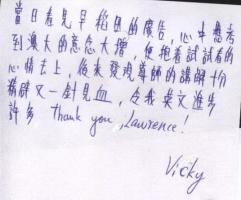 當日看見早稻田的廣告，心中應考
到澳大的意念大增，便抱着試試看的
心情去上，後來發現導師的講解十份
精辟又一針見血，令我英文進步
許多 Thank you, Lawrence!
Vicky